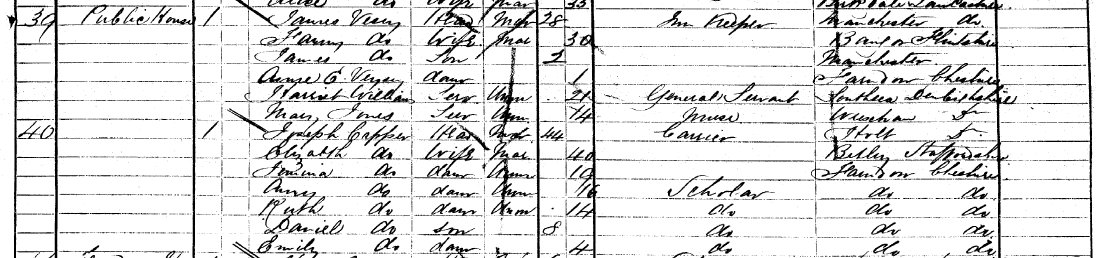 do Wife Mar 33
39 Public House 1 James Vesey Head Mar 28 Inn Keeper Manchester do
Fanny do Wife Mar 30 Bangor Flintshire
James do Son 2 Manchester
Annie E. Vesey daur 1 Farndon Cheshire
Harriet William Serv Unm 21 General Servant Southsea Denbighshire
Mary Jones Serv Unm 14 nurse Wrexham
40 1 Joseph Capper Head Mar 44 Carrier Holt
Elizabth do Wife Mar 40 Betley Staffordshire
Emma do daur Unm 19 Farndon Cheshire
Amy do daur Unm 16 Scholar do do
Ruth do daur Unm 14 do do do
Daniel do son 8 do do do
Emily do daur 4 do do do